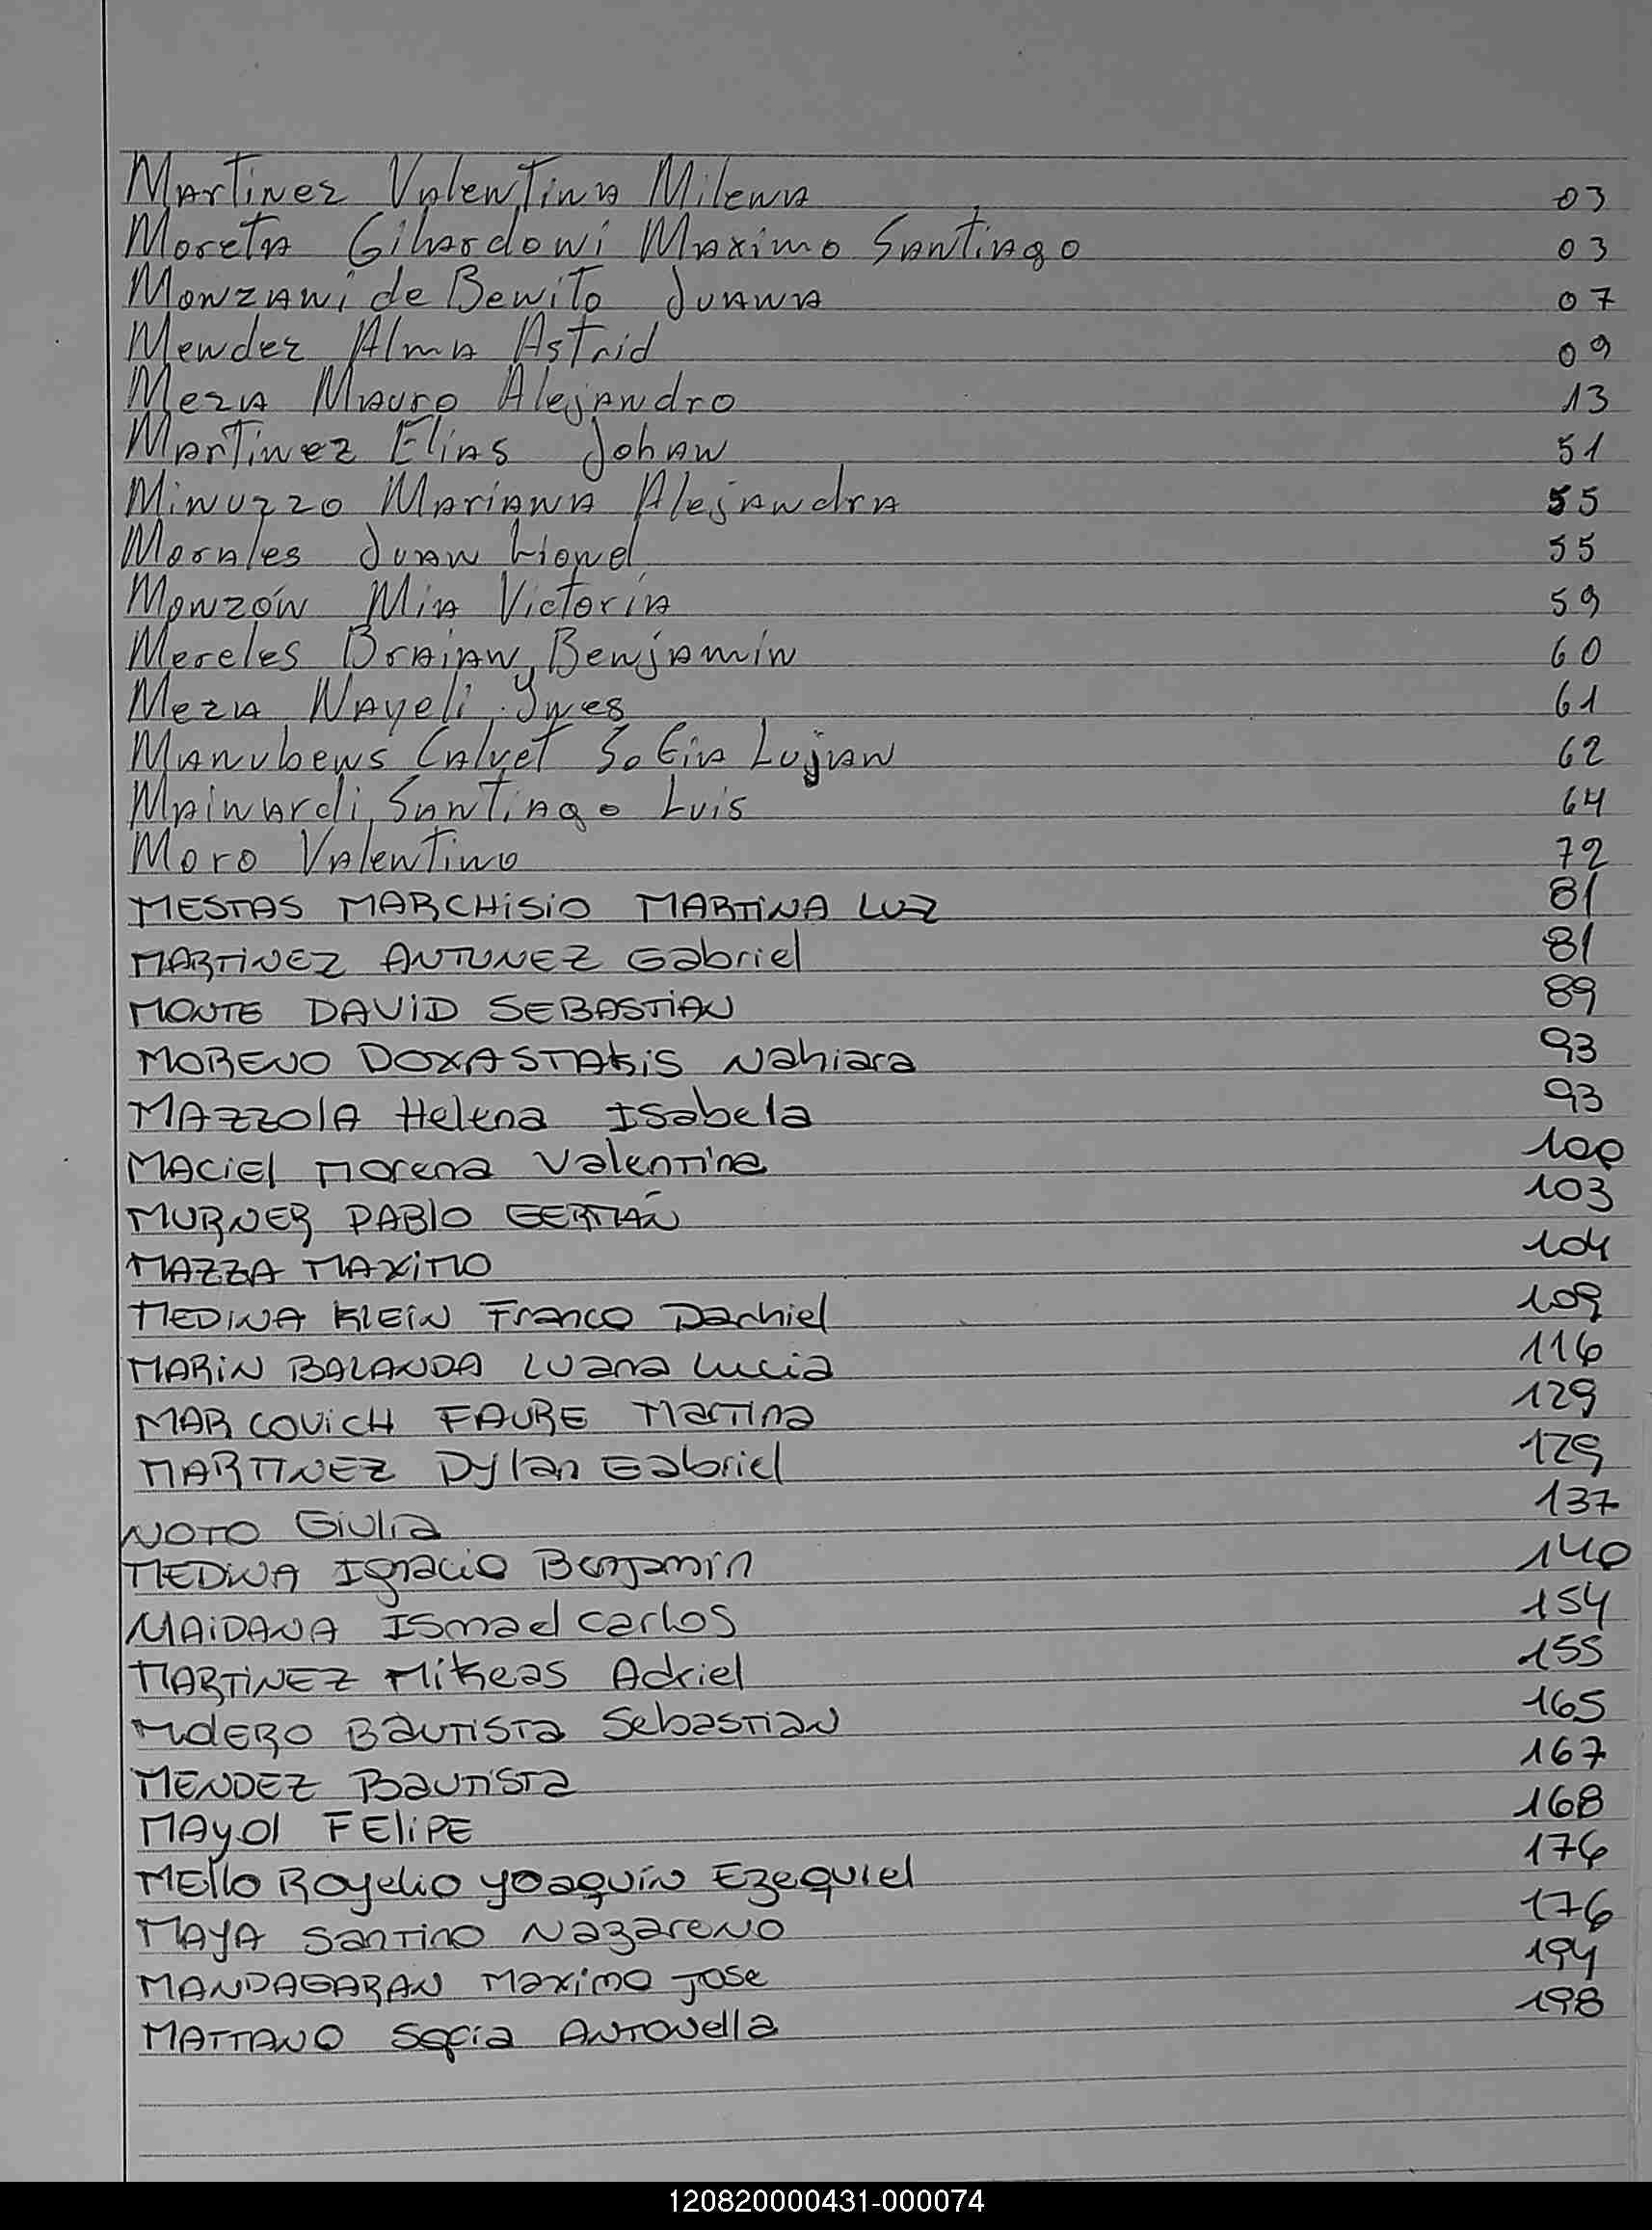 Martinez Valentina Milena 03
Moreta Gihardoni Maximo Santiago 03
Monzani de Benito Juana 07
Mendez Alma Astrid 09
Meza Mauro Alejandro 13
Martinez Elias Johan 51
Minuzzo Mariana Alejandra 55
Morales Juan Lionel 55
Monzón Mia Victoria 59
Mereles Braian Benjamín 60
Meza Nayeli Ynes 61
Manubens Calvet Sofia Lujan 62
Mainardi Santiago Luis 64
Moro Valentino 72
MESTAS MARCHISIO MARTINA LUZ 81
MARTINEZ ANTUNEZ Gabriel 81
MONTE DAVID SEBASTIAN 89
MORENO DOXASTAKIS Nahiara 93
MAZZOLA Helena Isabela 93
MACIEL Morena Valentina 100
MURNER PABLO GERMÁN 103
MAZZA MAXIMO 104
MEDINA KLEIN Franco Dachiel 109
MARIN BALANDA Luana Lucia 116
MARCOVICH FAURE Martina 129
MARTINEZ Dylan Gabriel 129
NOTO Giulia 137
MEDINA Ignacio Benjamín 140
MAIDANA Ismael Carlos 154
MARTINEZ Mikeas Adriel 155
MOLERO Bautista Sebastian 165
MENDEZ Bautista 167
MAYOL FELIPE 168
MELLO Rogelio Yoaquín Ezequiel 176
MAYA Santino Nazareno 176
MANDAGARAN Maximo Jose 194
MATTANO Sofia Antonella 198
120820000431-000074